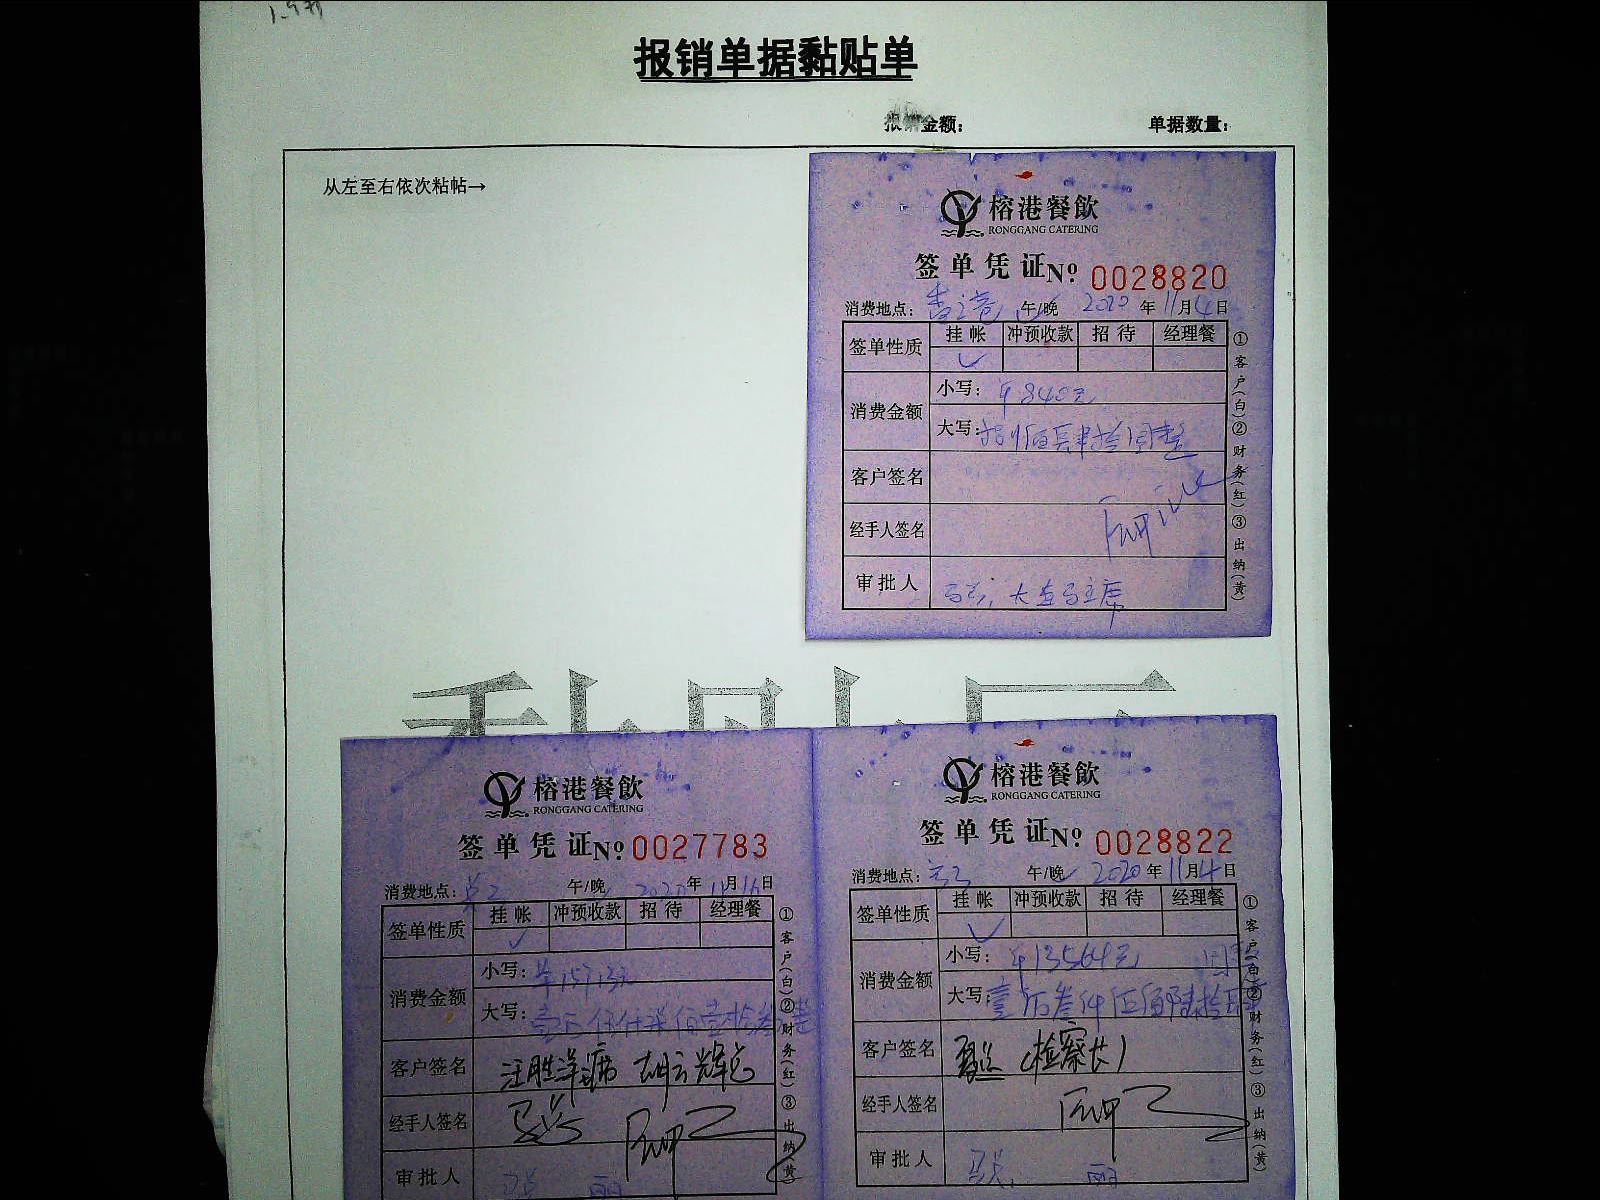 报销单据黏贴单
报销金额： 单据数量：
从左至右依次粘帖→
榕港餐飲
RONGGANG CATERING
签单凭证 № 0028820
消费地点： 午/晚 2020年11月4日
签单性质 挂帐 冲预收款 招待 经理餐
✓
消费金额 小写：¥840元
大写：捌佰肆拾圆整
客户签名
经手人签名
审批人
①客户(白)②财务(红)③出纳(黄)
榕港餐飲
RONGGANG CATERING
签单凭证 № 0027783
消费地点： 午/晚 2020年11月16日
签单性质 挂帐 冲预收款 招待 经理餐
✓
消费金额 小写：
大写：
客户签名 汪胜洋 胡云辉总
经手人签名
审批人
①客户(白)②财务(红)③出纳(黄)
榕港餐飲
RONGGANG CATERING
签单凭证 № 0028822
消费地点： 午/晚 2020年11月4日
签单性质 挂帐 冲预收款 招待 经理餐
✓
消费金额 小写：¥13564元
大写：壹万叁仟伍佰陆拾
客户签名 (检察长)
经手人签名
审批人
①客户(白)②财务(红)③出纳(黄)